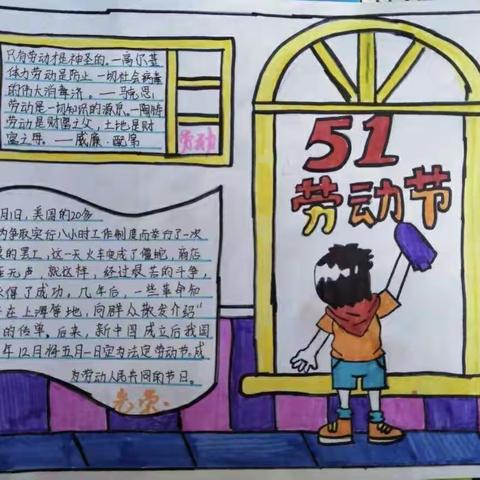 只有劳动才是神圣的。—高尔基
体力劳动是防止一切社会病毒
的伟大消毒济。——马克思
劳动是一切知识的源泉。—陶铸
劳动是财富之父，土地是财
富之母。——威廉·配第
劳动
51
劳动节
月1日，美国的20多
为争取实行八小时工作制度而举行了一次
的罢工，这一天火车变成了僵蛇，商店
无声，就这样，经过艰苦的斗争，
了成功。几年后，一些革命知
在上海等地，向群众散发介绍"
的传单。后来，新中国成立后我国
年12月将五月一日定为法定劳动节。成
为劳动人民共同的节日。
光荣